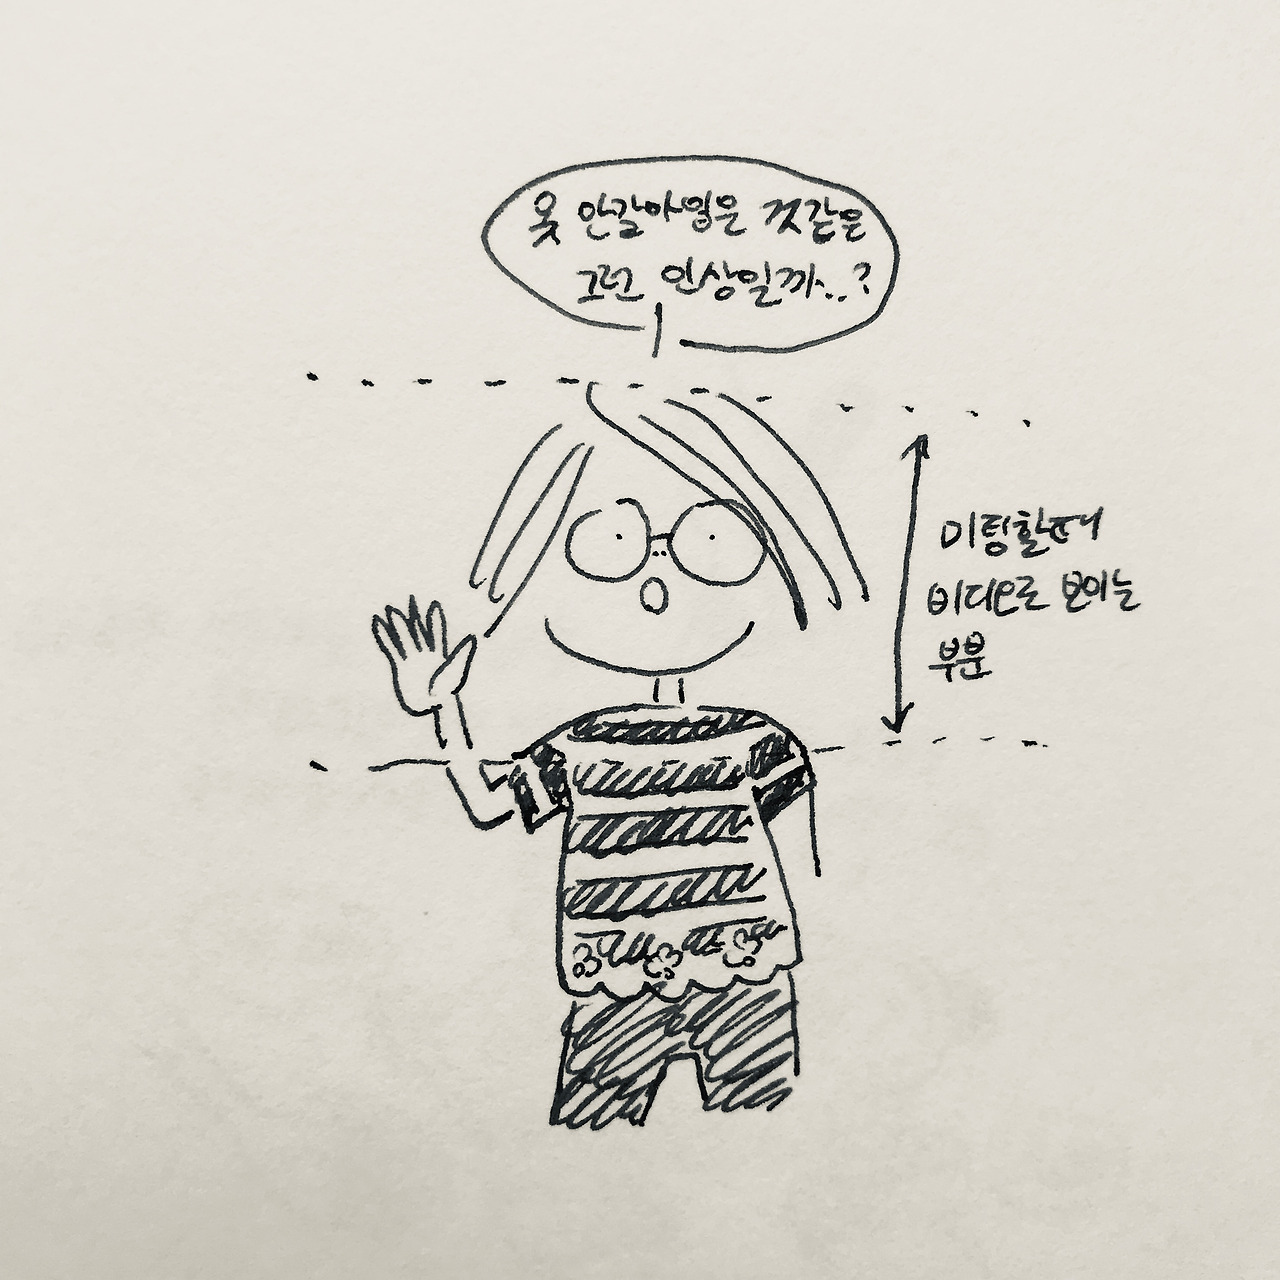 옷 안갈아입은 것같은
그런 인상일까..?
미팅할때
비디오로 보이는
부분